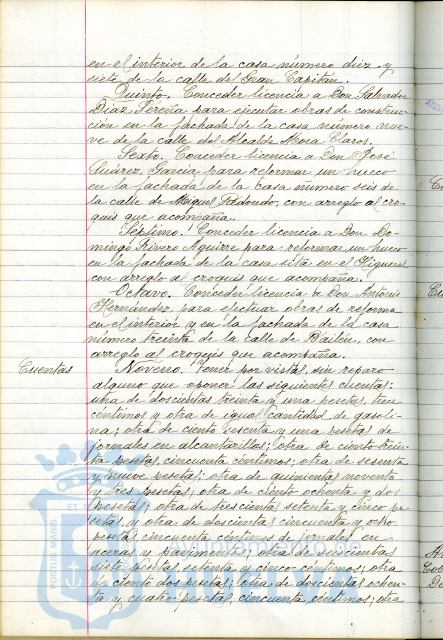 en el interior de la casa número diez y
siete de la calle del Gran Capitán.
Quinto. Conceder licencia a Don Salvador
Díaz Pereña para ejecutar obras de construc-
ción en la fachada de la casa número nue-
ve de la calle del Alcalde Mora Claros.
Sexto. Conceder licencia a Don José
Suárez García para reformar un hueco
en la fachada de la casa número seis de
la calle de Miguel Redondo, con arreglo al cro-
quis que acompaña.
Séptimo. Conceder licencia a Don Do-
mingo Rivero Aguirre para reformar un hueco
en la fachada de la casa sita en el Higueral
con arreglo al croquis que acompaña.
Octavo. Conceder licencia a Don Antonio
Hernández para efectuar obras de reforma
en el interior y en la fachada de la casa
número treinta de la calle de Bailén, con
arreglo al croquis que acompaña.
Cuentas
Noveno. Tener por vistas, sin reparo
alguno que oponer las siguientes cuentas:
una de doscientas treinta y una pesetas, trece
céntimos y otra de igual cantidad de gasoli-
na; otra de ciento sesenta y una pesetas de
jornales en alcantarillas; otra de ciento trein-
ta pesetas, cincuenta céntimos; otra de sesenta
y nueve pesetas; otra de quinientas noventa
y tres pesetas; otra de ciento ochenta y dos
pesetas; otra de trescientas setenta y cinco pe-
setas, y otra de doscientas cincuenta y ocho
pesetas cincuenta céntimos de jornales en
aceras y pavimento; otra de seiscientas
siete pesetas, setenta y cinco céntimos; otra
de ciento dos pesetas; otra de doscientas ochen-
ta y cuatro pesetas, cincuenta céntimos; otra
PORTUS MARIS
ET